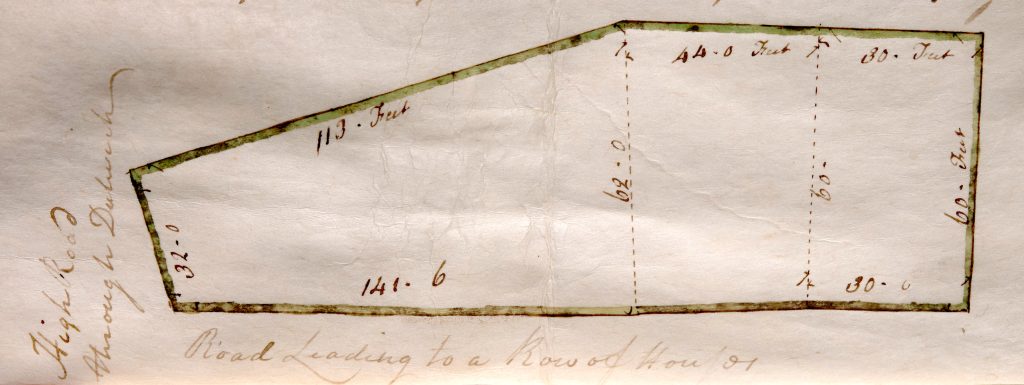 44-0 Feet
30- Feet
113- Feet
62-0
60-
60- Feet
32-0
141-6
30-0
High Road
through Dulwich
Road Leading to a Row of Houses